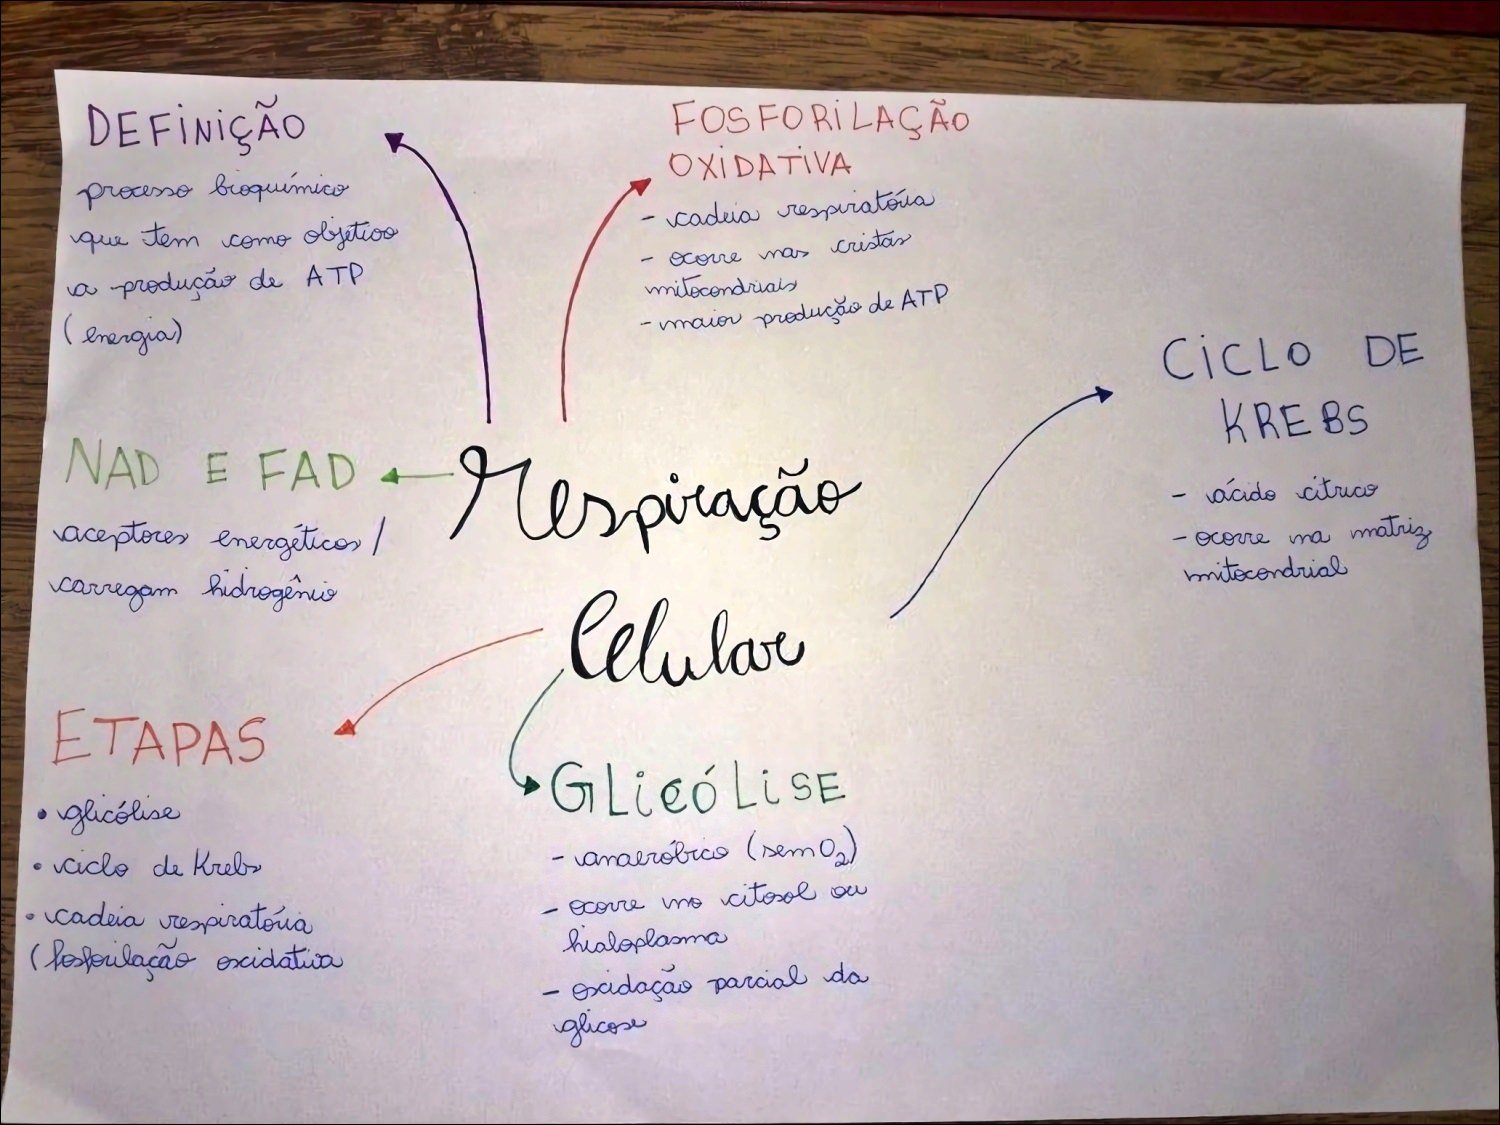 DEFINIÇÃO
processo bioquímico
que tem como objetivo
a produção de ATP
(energia)
FOSFORILAÇÃO
OXIDATIVA
- cadeia respiratória
- ocorre nas cristas
mitocondriais
- maior produção de ATP
CICLO DE
KREBS
- ácido cítrico
- ocorre na matriz
mitocondrial
NAD E FAD
aceptores energéticos /
carregam hidrogênio
Respiração
Celular
ETAPAS
• glicólise
• ciclo de Krebs
• cadeia respiratória
(fosforilação oxidativa
GLICÓLISE
- anaeróbico (sem O₂)
- ocorre no citosol ou
hialoplasma
- oxidação parcial da
glicose